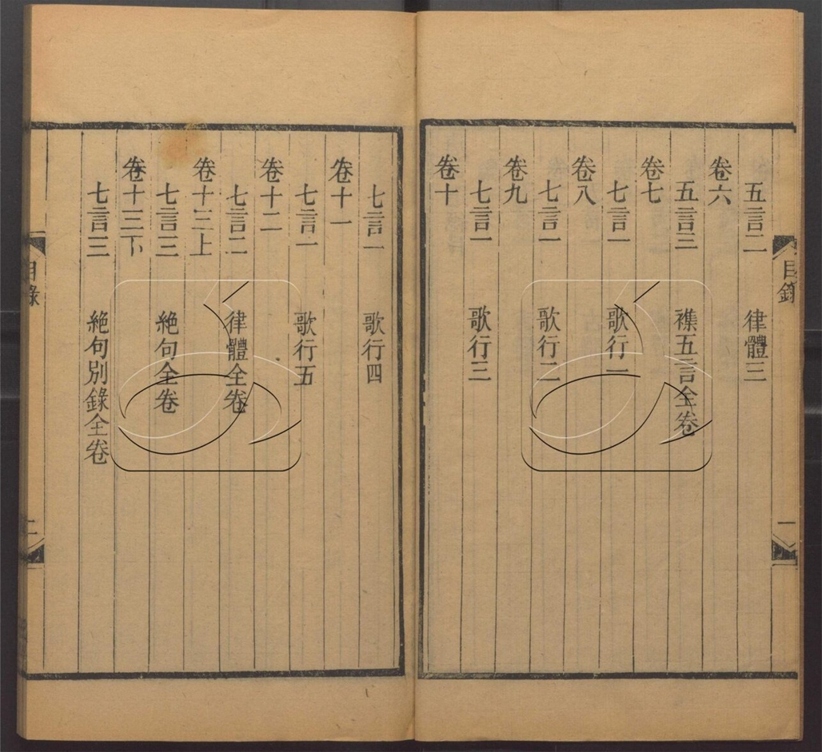 五言二 律體三
卷六
五言三 襍五言全卷
卷七
七言一 歌行一
卷八
七言一 歌行二
卷九
七言一 歌行三
卷十
目錄
一
七言一 歌行四
卷十一
七言一 歌行五
卷十二
七言二 律體全卷
卷十三上
七言三 絕句全卷
卷十三下
七言三 絕句別錄全卷
目錄
二